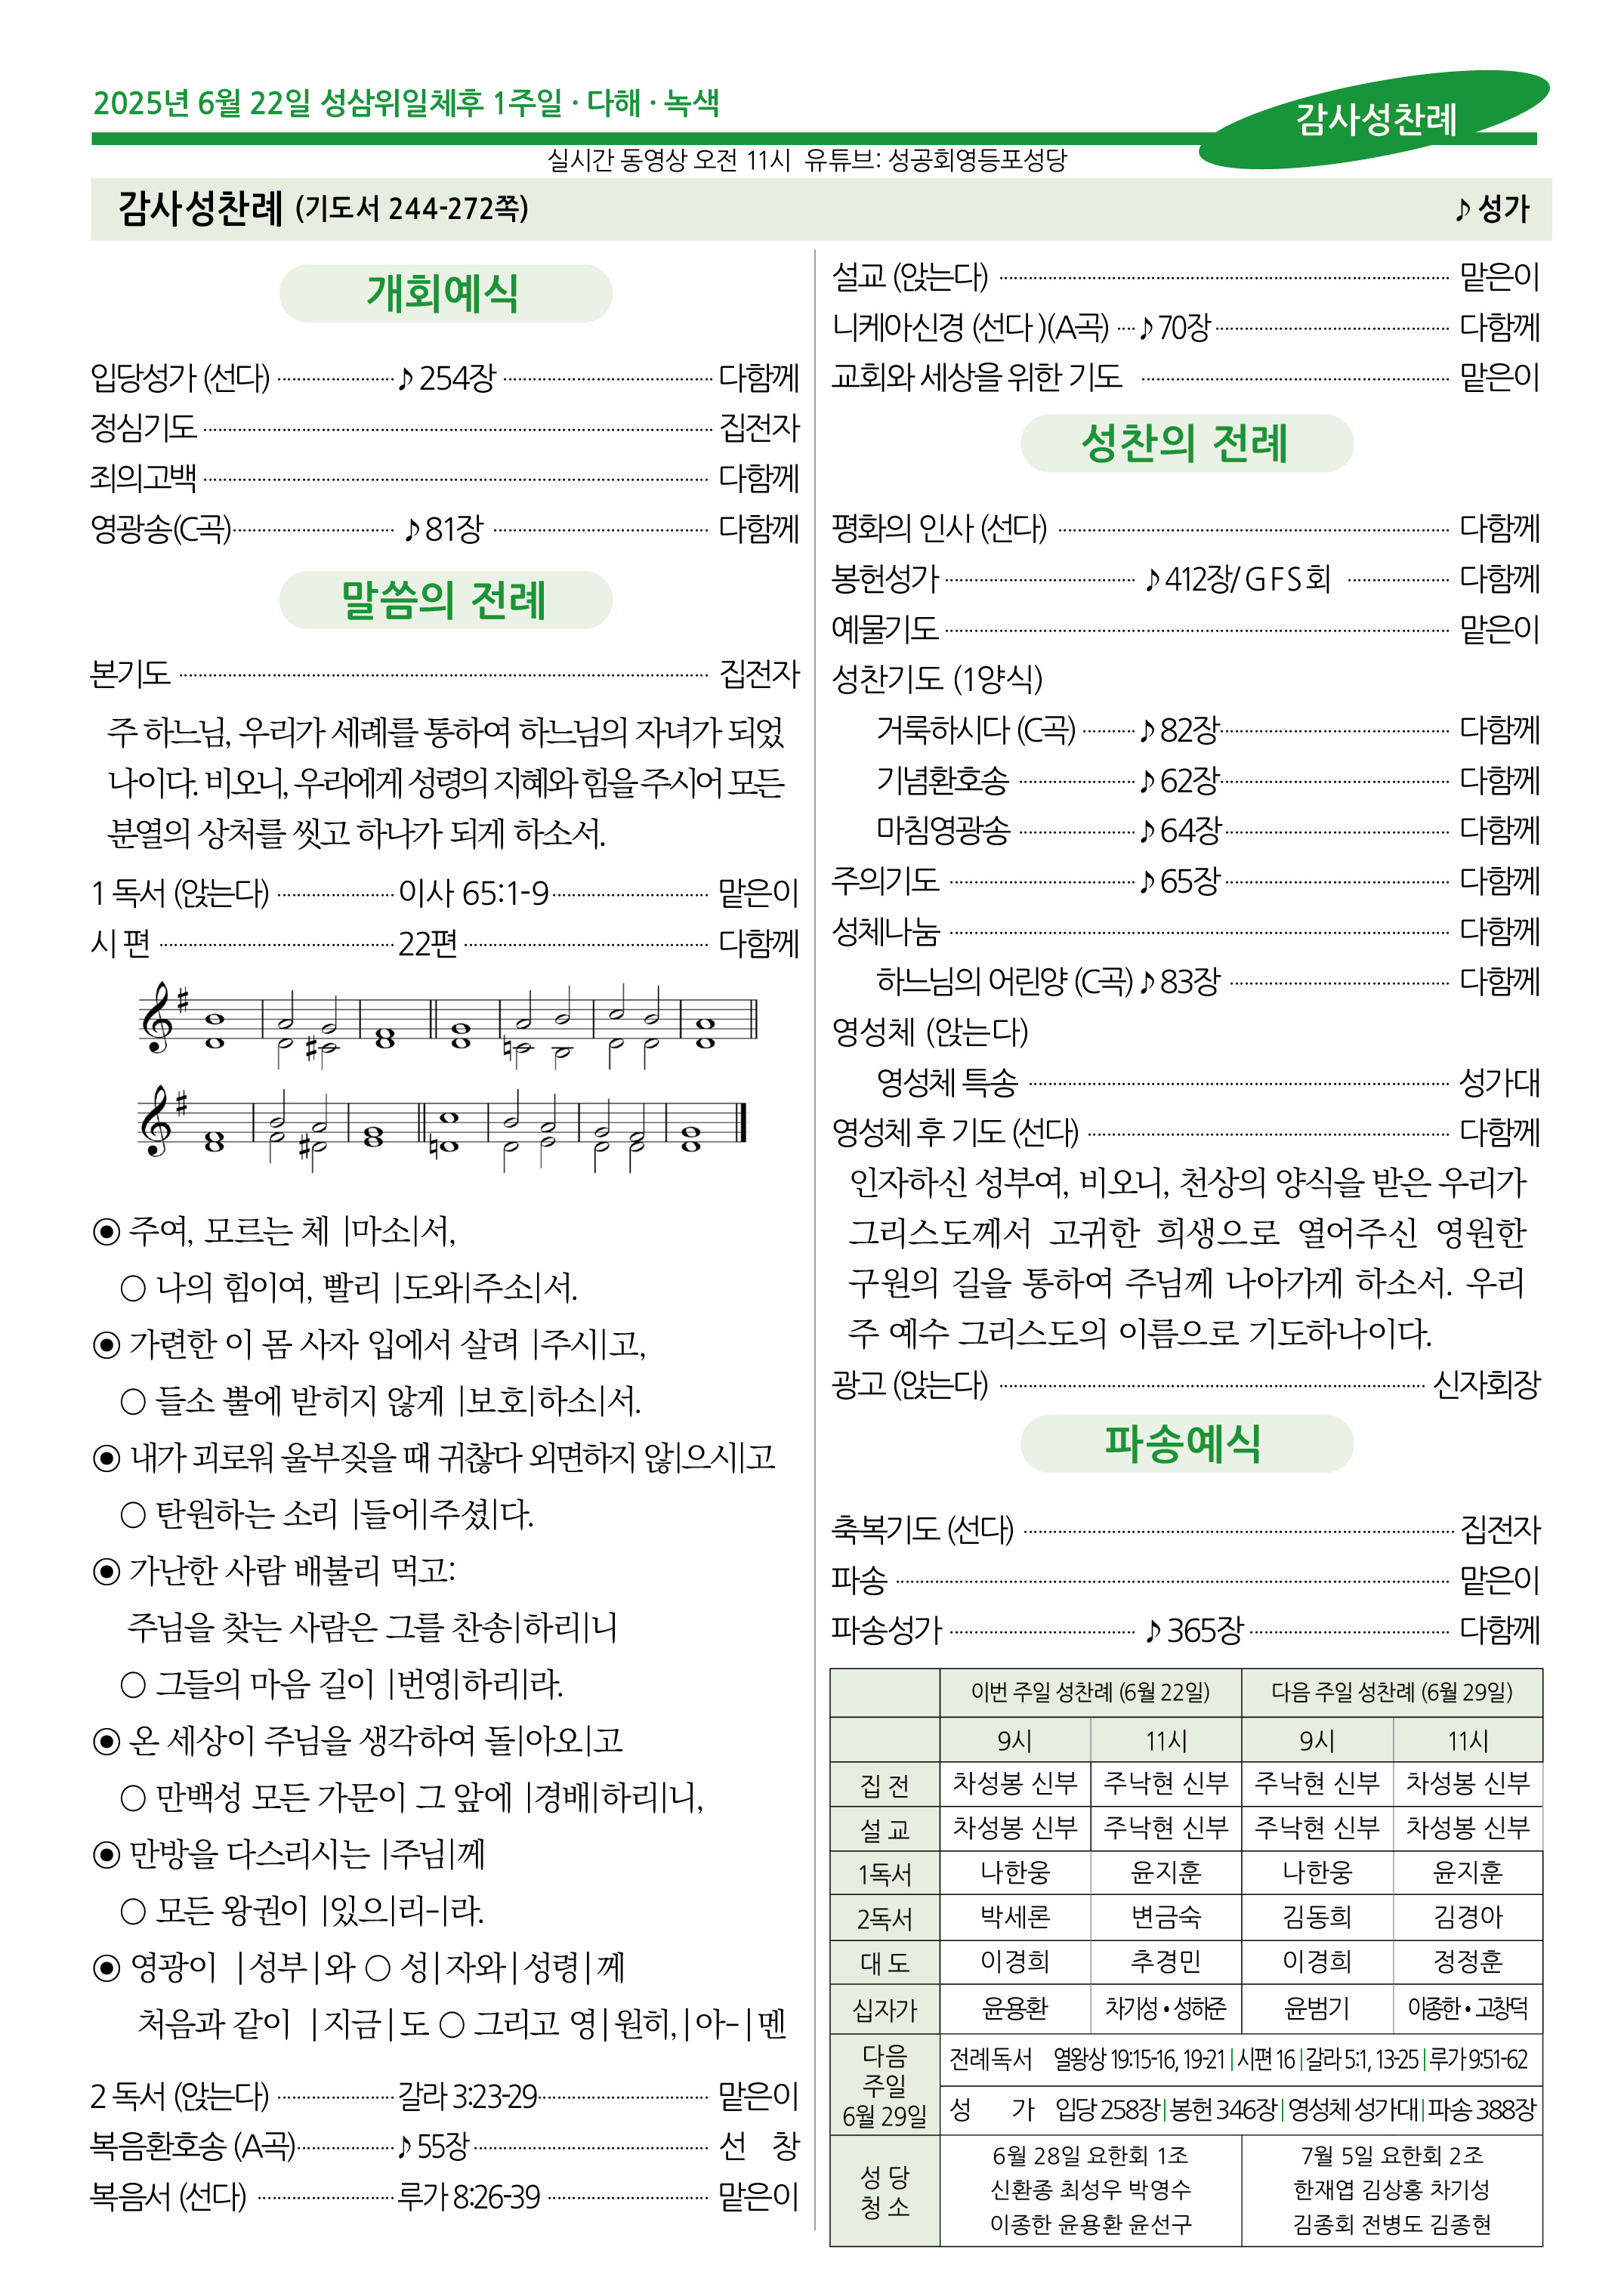 2025년 6월 22일 성삼위일체후 1주일 · 다해 · 녹색
감사성찬례
실시간 동영상 오전 11시 유튜브: 성공회영등포성당
감사성찬례 (기도서 244-272쪽) ♪ 성가
개회예식
입당성가 (선다) ♪ 254장 다함께
정심기도 집전자
죄의고백 다함께
영광송(C곡) ♪ 81장 다함께
말씀의 전례
본기도 집전자
주 하느님, 우리가 세례를 통하여 하느님의 자녀가 되었
나이다. 비오니, 우리에게 성령의 지혜와 힘을 주시어 모든
분열의 상처를 씻고 하나가 되게 하소서.
1 독서 (앉는다) 이사 65:1-9 맡은이
시 편 22편 다함께
◉ 주여, 모르는 체 |마소|서,
○ 나의 힘이여, 빨리 |도와|주소|서.
◉ 가련한 이 몸 사자 입에서 살려 |주시|고,
○ 들소 뿔에 받히지 않게 |보호|하소|서.
◉ 내가 괴로워 울부짖을 때 귀찮다 외면하지 않|으시|고
○ 탄원하는 소리 |들어|주셨|다.
◉ 가난한 사람 배불리 먹고:
주님을 찾는 사람은 그를 찬송|하리|니
○ 그들의 마음 길이 |번영|하리|라.
◉ 온 세상이 주님을 생각하여 돌|아오|고
○ 만백성 모든 가문이 그 앞에 |경배|하리|니,
◉ 만방을 다스리시는 |주님|께
○ 모든 왕권이 |있으|리-|라.
◉ 영광이 |성부|와 ○ 성|자와|성령|께
처음과 같이 |지금|도 ○ 그리고 영|원히,|아-|멘
2 독서 (앉는다) 갈라 3:23-29 맡은이
복음환호송 (A곡) ♪ 55장 선 창
복음서 (선다) 루가 8:26-39 맡은이
설교 (앉는다) 맡은이
니케아신경 (선다 )(A곡) ♪ 70장 다함께
교회와 세상을 위한 기도 맡은이
성찬의 전례
평화의 인사 (선다) 다함께
봉헌성가 ♪ 412장/ G F S 회 다함께
예물기도 맡은이
성찬기도 (1양식)
거룩하시다 (C곡) ♪ 82장 다함께
기념환호송 ♪ 62장 다함께
마침영광송 ♪ 64장 다함께
주의기도 ♪ 65장 다함께
성체나눔 다함께
하느님의 어린양 (C곡) ♪ 83장 다함께
영성체 (앉는다)
영성체 특송 성가대
영성체 후 기도 (선다) 다함께
인자하신 성부여, 비오니, 천상의 양식을 받은 우리가
그리스도께서 고귀한 희생으로 열어주신 영원한
구원의 길을 통하여 주님께 나아가게 하소서. 우리
주 예수 그리스도의 이름으로 기도하나이다.
광고 (앉는다) 신자회장
파송예식
축복기도 (선다) 집전자
파송 맡은이
파송성가 ♪ 365장 다함께
이번 주일 성찬례 (6월 22일) 다음 주일 성찬례 (6월 29일)
9시 11시 9시 11시
집 전 차성봉 신부 주낙현 신부 주낙현 신부 차성봉 신부
설 교 차성봉 신부 주낙현 신부 주낙현 신부 차성봉 신부
1독서 나한웅 윤지훈 나한웅 윤지훈
2독서 박세론 변금숙 김동희 김경아
대 도 이경희 추경민 이경희 정정훈
십자가 윤용환 차기성 • 성하준 윤범기 이종한 • 고창덕
다음
주일
6월 29일
전례독서 열왕상 19:15-16, 19-21 | 시편 16 | 갈라 5:1, 13-25 | 루가 9:51-62
성 가 입당 258장 | 봉헌 346장 | 영성체 성가대 | 파송 388장
성 당
청 소
6월 28일 요한회 1조
신환종 최성우 박영수
이종한 윤용환 윤선구
7월 5일 요한회 2조
한재엽 김상홍 차기성
김종회 전병도 김종현